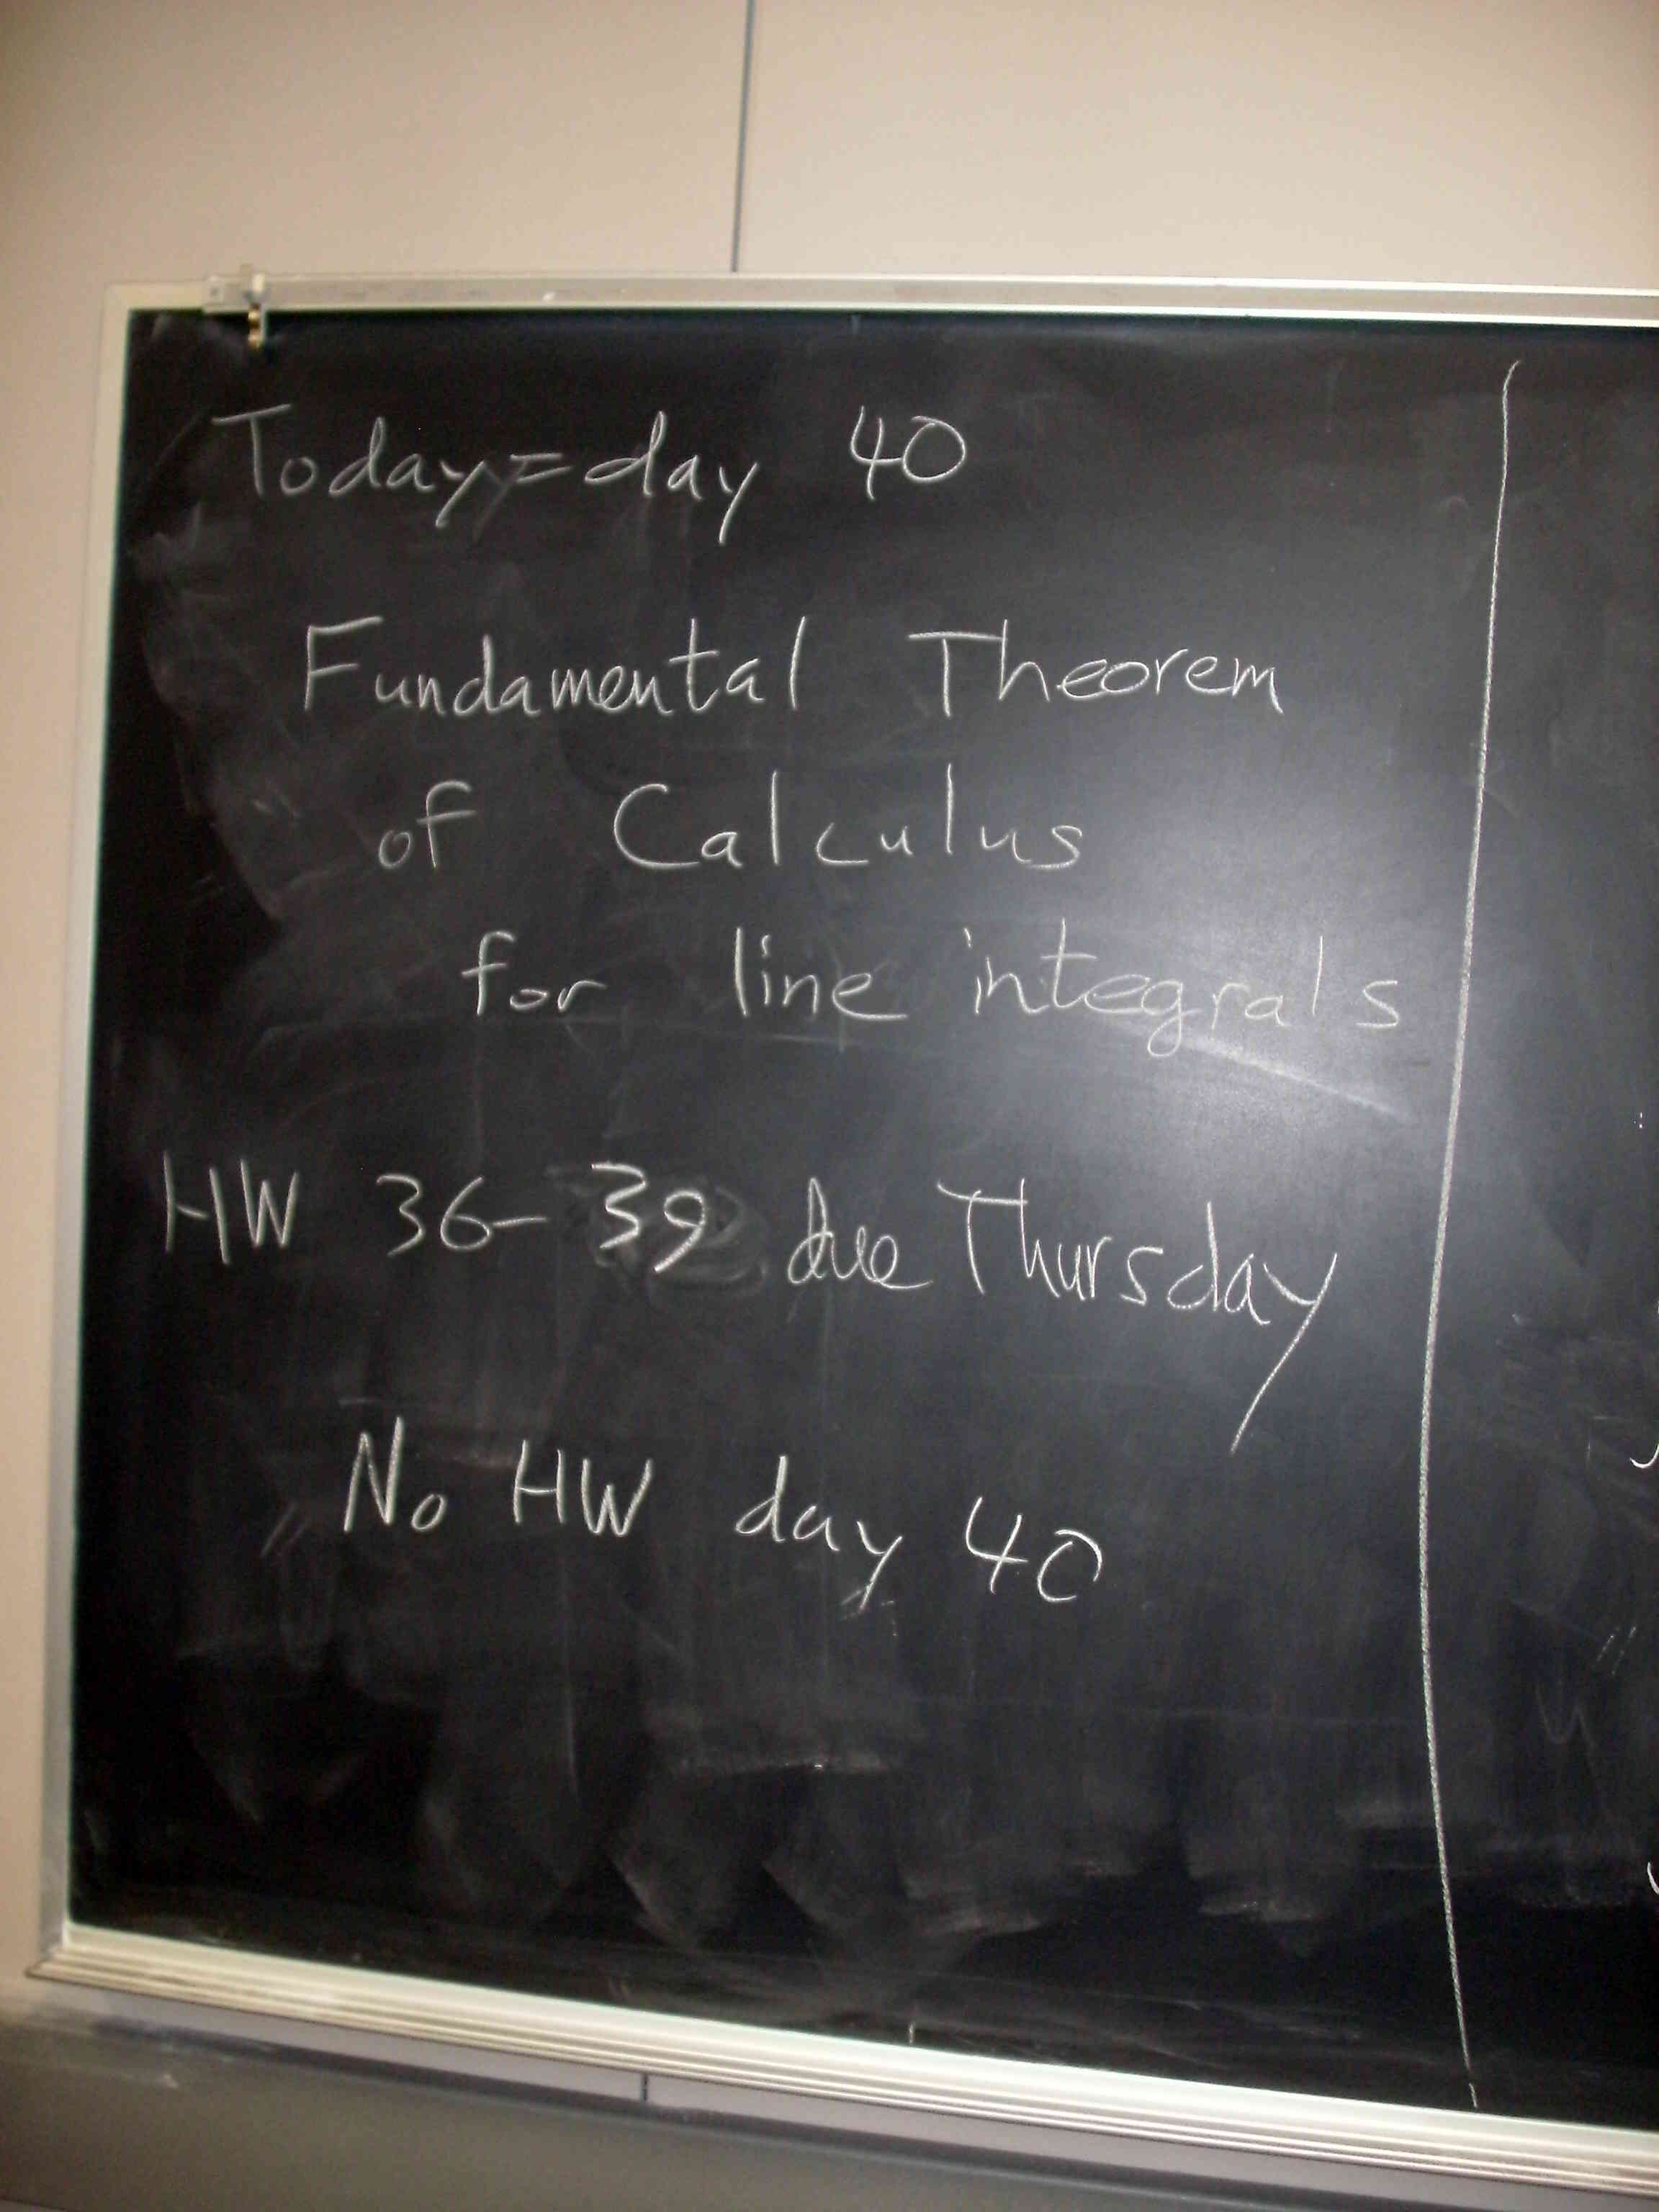 Today=day 40
Fundamental Theorem
of Calculus
for line integrals
HW 36-39 due Thursday
No HW day 40